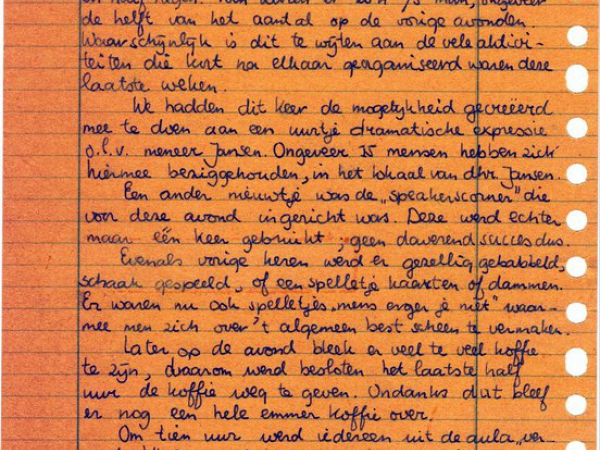 man, ongeveer
de helft van het aantal op de vorige avonden.
Waarschijnlijk is dit te wijten aan de vele aktivi-
teiten die kort na elkaar georganiseerd waren deze
laatste weken.
We hadden dit keer de mogelijkheid gecreëerd
mee te doen aan een uurtje dramatische expressie
o.l.v. meneer Jansen. Ongeveer 15 mensen hebben zich
hiermee beziggehouden, in het lokaal van dhr. Jansen.
Een ander nieuwtje was de „speakerscorner" die
voor deze avond ingericht was. Deze werd echter
maar één keer gebruikt ; geen daverend succes dus.
Evenals vorige keren werd er gezellig gebabbeld,
schaak gespeeld, of een spelletje kaarten of dammen.
Er waren nu ook spelletjes „mens erger je niet" waar-
mee men zich over 't algemeen best scheen te vermaken.
Later op de avond bleek er veel te veel koffie
te zijn, daarom werd besloten het laatste half
uur de koffie weg te geven. Ondanks dat bleef
er nog een hele emmer koffie over.
Om tien uur werd iedereen uit de aula „ver-